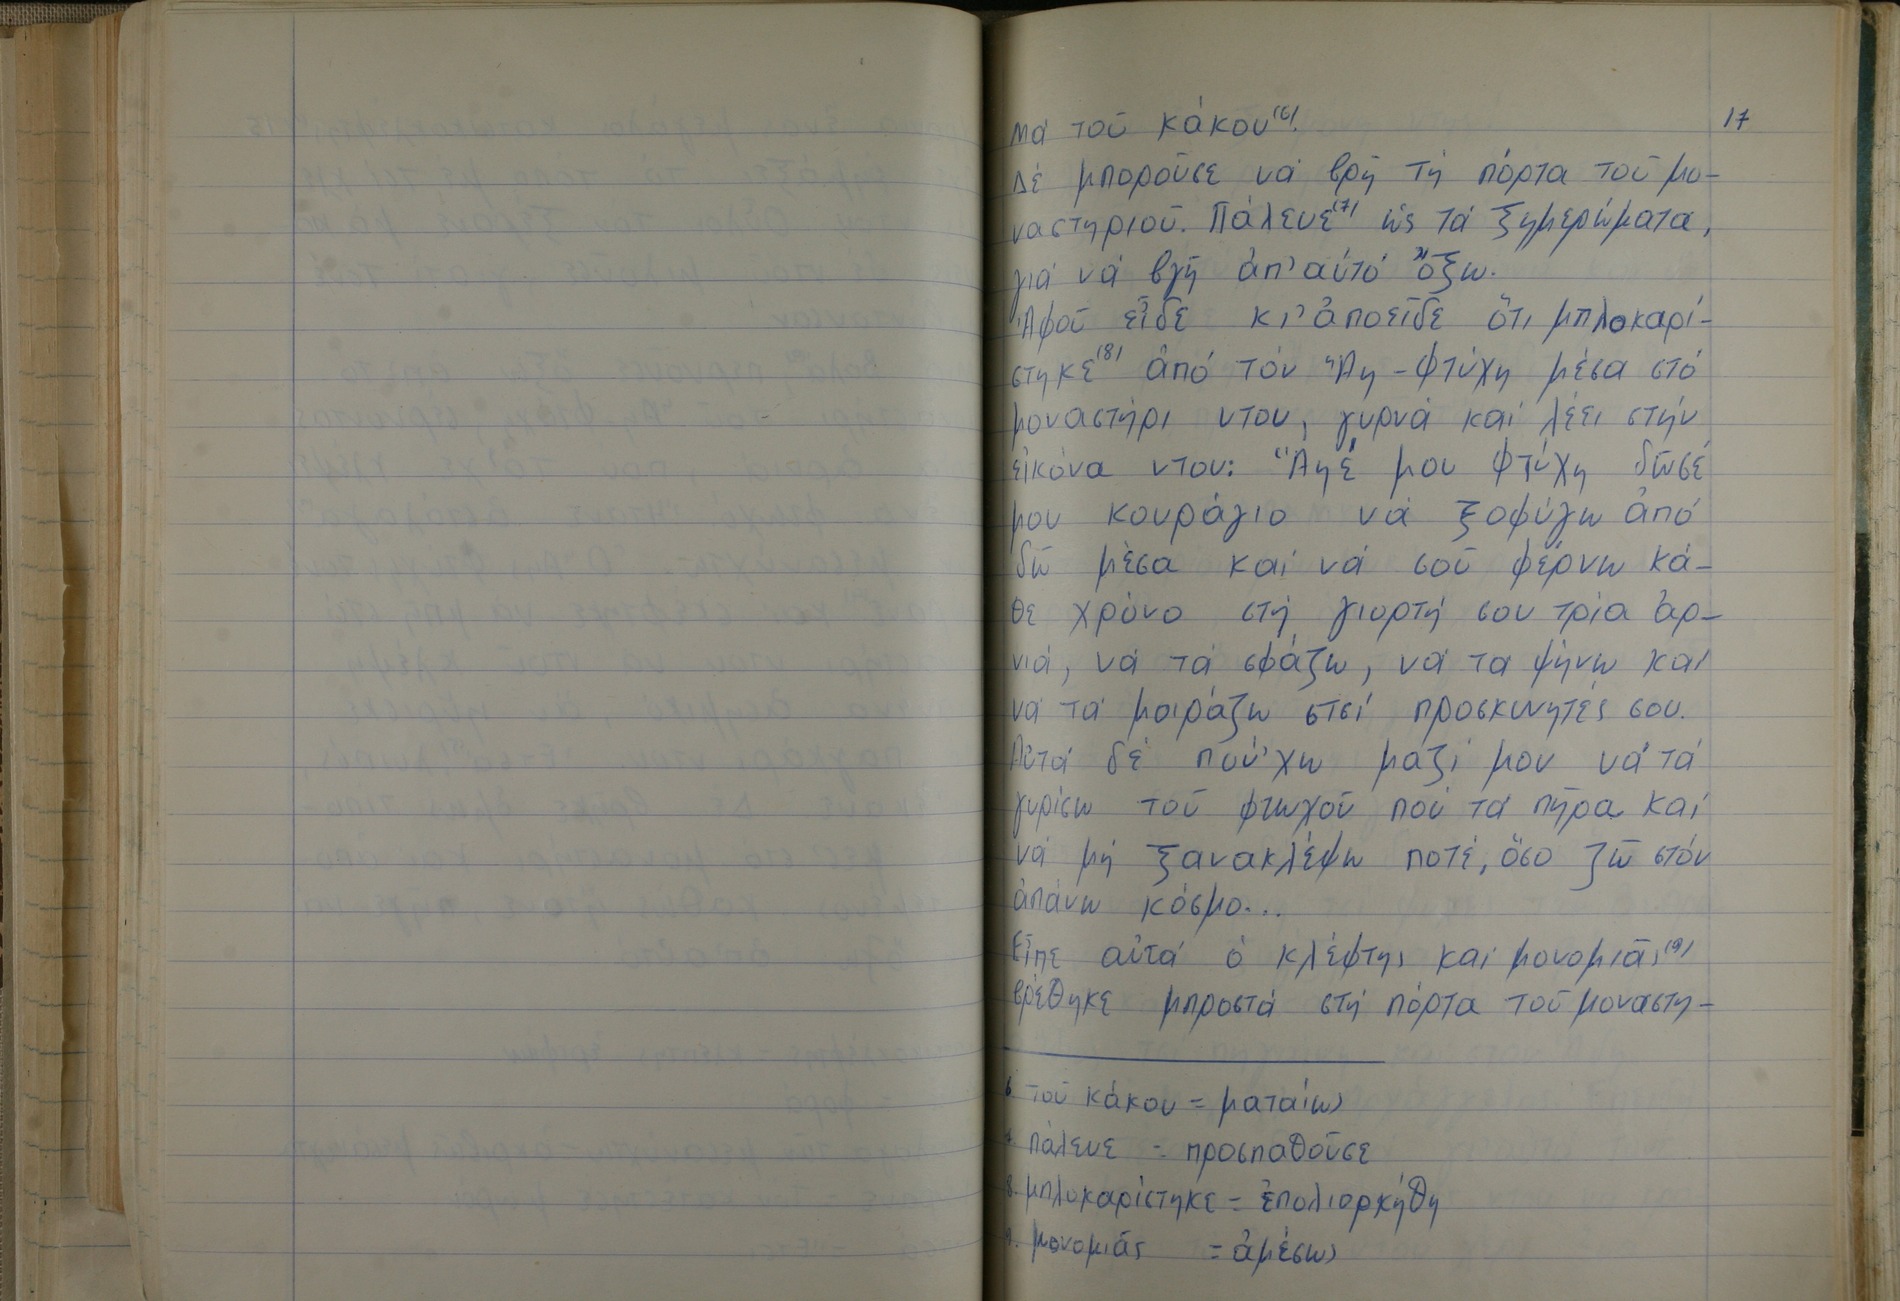 17
Μά τοῦ κάκου⁽⁶⁾.
Δέ μποροῦσε νά βρῆ τή πόρτα τοῦ μο-
ναστηριοῦ. Πάλευε⁽⁷⁾ ὡς τά ξημερώματα,
γιά νά βγῆ ἀπ' αὐτό ὄξω.
Ἀφοῦ εἶδε κι' ἀποεῖδε ὅτι μπλοκαρί-
στηκε⁽⁸⁾ ἀπό τόν Ἅη-Φτύχη μέσα στό
μοναστήρι ντου, γυρνᾶ καί λέει στήν
εἰκόνα ντου: Ἅηέ μου Φτύχη δῶσέ
μου κουράγιο νά ξοφύγω ἀπό
δῶ μέσα καί νά σοῦ φέρνω κά-
θε χρόνο στή γιορτή σου τρία ἀρ-
νιά, νά τά σφάζω, νά τά ψήνω καί
νά τά μοιράζω στσί προσκυνητές σου.
Αὐτά δέ πού 'χω μαζί μου νά τά
γυρίσω τοῦ φτωχοῦ πού τά πῆρα καί
νά μή ξανακλέψω ποτέ, ὅσο ζῶ στόν
ἀπάνω κόσμο...
Εἶπε αὐτά ὁ κλέφτης καί μονομιᾶς⁽⁹⁾
βρέθηκε μπροστά στή πόρτα τοῦ μοναστη-
6 τοῦ κάκου = ματαίως
7. πάλευε = προσπαθοῦσε
8. μπλοκαρίστηκε = ἐπολιορκήθη
9. μονομιᾶς = ἀμέσως